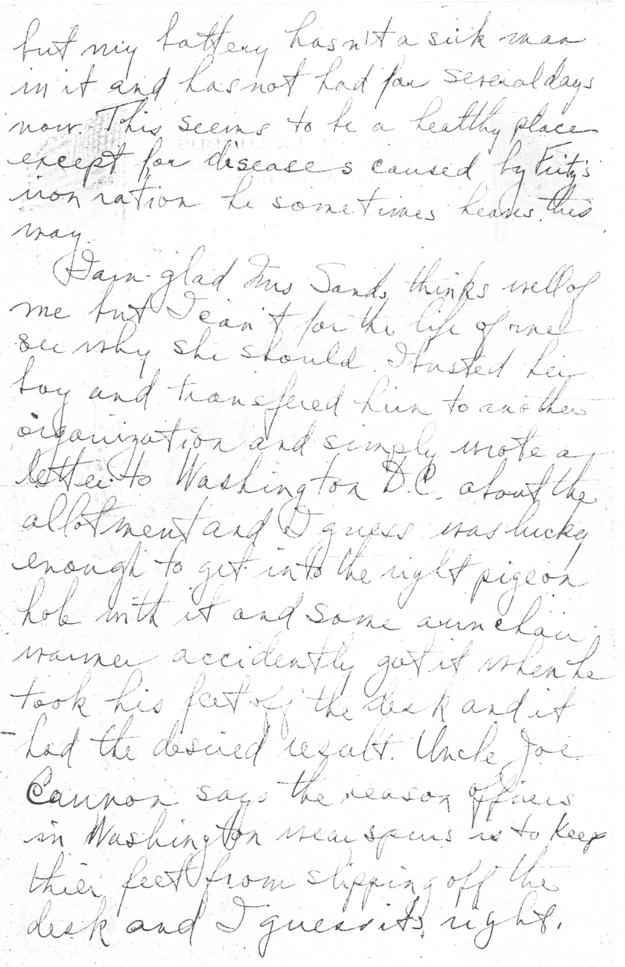 but my battery hasn't a sick man
in it and has not had for several days
now. This seems to be a healthy place
except for diseases caused by Fritz's
iron ration he sometimes heaves this
way.
I am glad Mrs Sands thinks well of
me but I can't for the life of me
see why she should. I busted her
boy and transfered him to another
organization and simply wrote a
letter to Washington D.C. about the
allotment and I guess was lucky
enough to get into the right pigeon
hole with it and some armchair
warmer accidently got it when he
took his feet off the desk and it
had the desired result. Uncle Joe
Cannon says the reason officers
in Washington wear spurs is to keep
thier feet from slipping off the
desk and I guess its right.